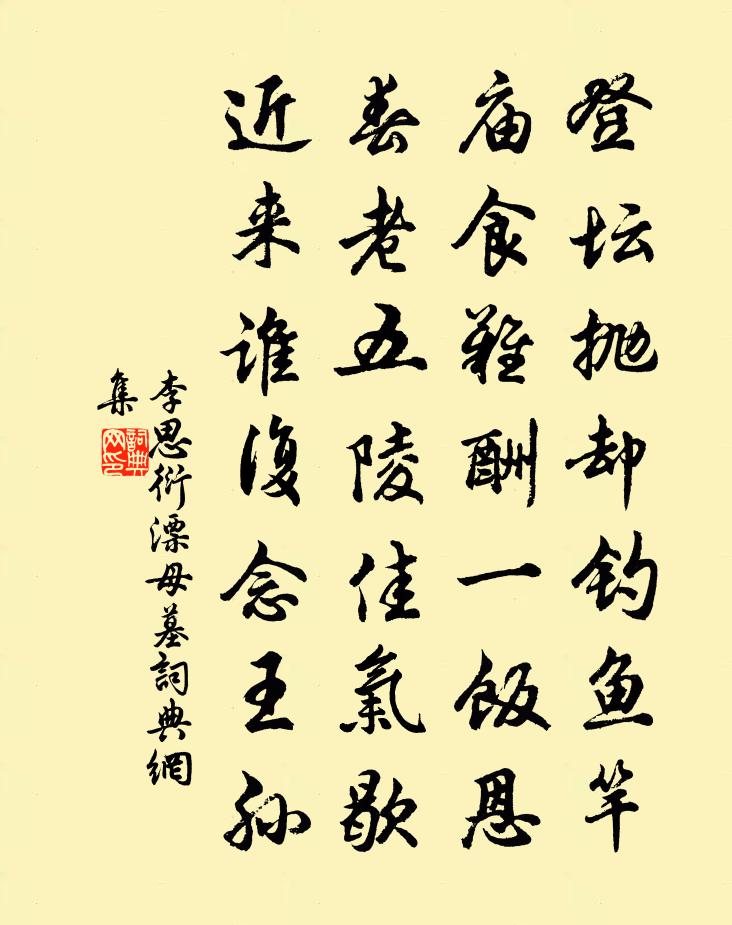 登坛抛却钓鱼竿
庙食难酬一饭恩
春老五陵佳氣歇
近来谁復念王孙
李思衍漂母墓詞典網
集
詞典
网印